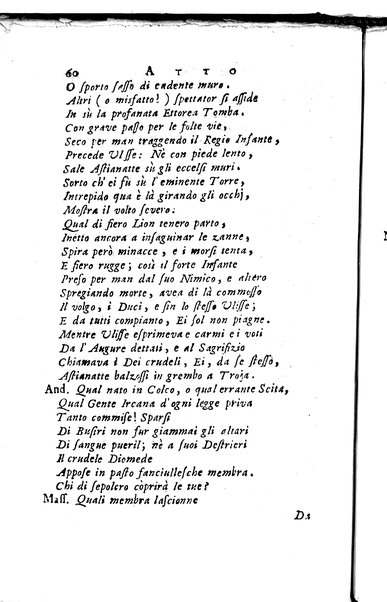 60 ATTO
O ſporto ſaſſo di cadente muro.
Altri (o misfatto!) ſpettator ſi aſſide
In sù la profanata Ettorea Tomba.
Con grave paſſo per le folte vie,
Seco per man traggendo il Regio Infante,
Precede Uliſſe: Nè con piede lento,
Sale Aſtianatte sù gli eccelſi muri.
Sorto ch'ei fù ſu l'eminente Torre,
Intrepido qua è là girando gli occhj,
Moſtra il volto ſevero:
Qual di fiero Lion tenero parto,
Inetto ancora a inſaguinar le zanne,
Spira però minacce, e i morſi tenta,
E fiero rugge; così il forte Infante
Preſo per man dal ſuo Nimico, e altero
Spregiando morte, avea di là commoſſo
Il volgo, i Duci, e fin lo ſteſſo Uliſſe;
E da tutti compianto, Ei ſol non piagne.
Mentre Uliſſe eſprimeva e carmi e i voti
Da l'Augure dettati, e al Sagrifizio
Chiamava i Dei crudeli, Ei, da ſe ſteſſo,
Aſtianatte balzoſſi in grembo a Troja.
And. Qual nato in Colco, o qual errante Scita,
Qual Gente Ircana d'ogni legge priva
Tanto commiſe! Sparſi
Di Buſiri non fur giammai gli altari
Di ſangue pueril; nè a ſuoi Deſtrieri
Il crudele Diomede
Appoſe in paſto fanciulleſche membra.
Chi di ſepolcro còprirà le tue?
Maſſ. Quali membra laſcionne
Da